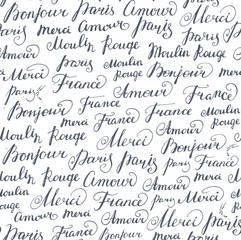 Bonjour Paris Amour Merci
Paris merci Amour Bonjour
Moulin Rouge France Moulin Rouge
Paris Bonjour Paris
Merci France Amour Rouge
Paris France Bonjour
Bonjour France Moulin
Amour Merci France Rouge
Moulin Rouge Merci Amour
Bonjour Paris Paris Merci
Moulin Rouge Amour Paris Bonjour
Amour merci France Moulin Rouge
Merci Amour Merci